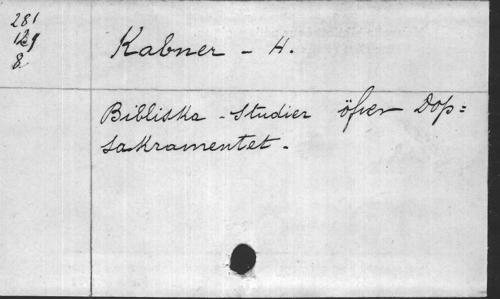 281
129
8.
Kabner - H.
Bibliska - Studier öfver Dop=
sakramentet.